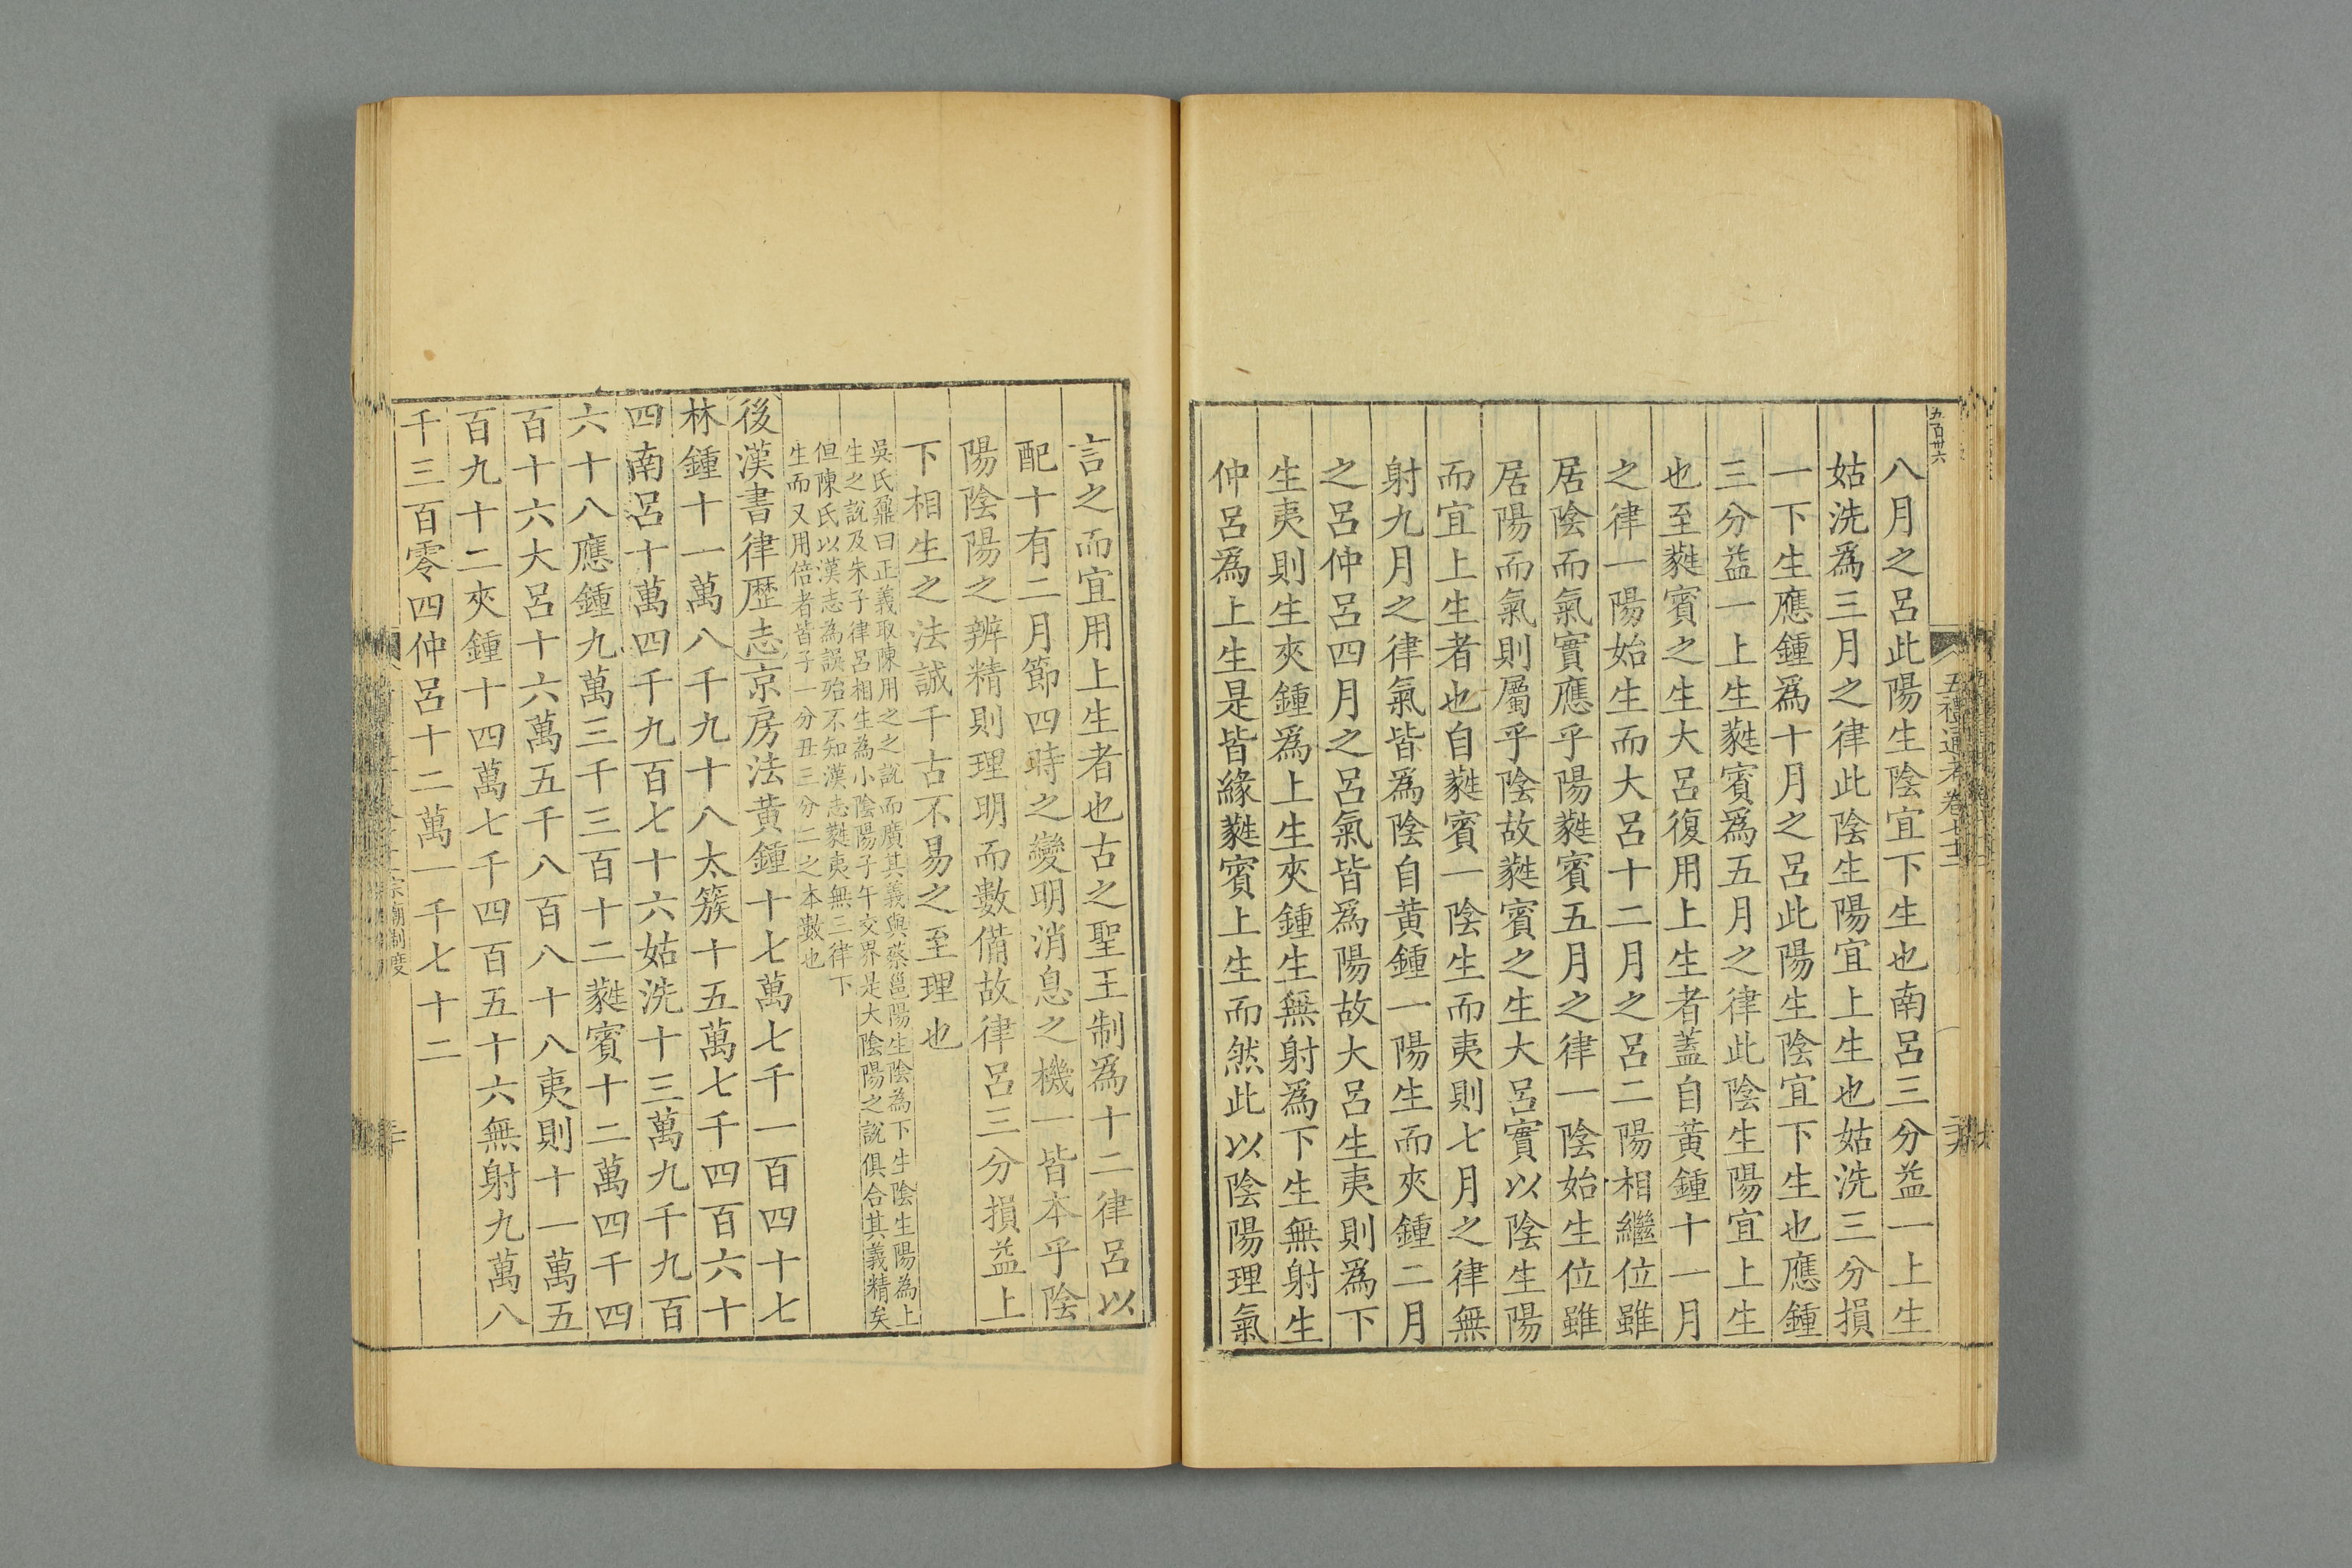 九百卅六
五禮通考卷七十二
八月之呂此陽生陰宜下生也南呂三分益一上生
姑洗爲三月之律此陰生陽宜上生也姑洗三分損
一下生應鍾爲十月之呂此陽生陰宜下生也應鍾
三分益一上生蕤賓爲五月之律此陰生陽宜上生
也至蕤賓之生大呂復用上生者蓋自黃鍾十一月
之律一陽始生而大呂十二月之呂二陽相繼位雖
居陰而氣實應乎陽蕤賓五月之律一陰始生位雖
居陽而氣則屬乎陰故蕤賓之生大呂實以陰生陽
而宜上生者也自蕤賓一陰生而夷則七月之律無
射九月之律氣皆爲陰自黃鍾一陽生而夾鍾二月
之呂仲呂四月之呂氣皆爲陽故大呂生夷則爲下
生夷則生夾鍾爲上生夾鍾生無射爲下生無射生
仲呂爲上生是皆緣蕤賓上生而然此以陰陽理氣
言之而宜用上生者也古之聖王制爲十二律呂以
配十有二月節四時之變明消息之機一皆本乎陰
陽陰陽之辨精則理明而數備故律呂三分損益上
下相生之法誠千古不易之至理也
吳氏鼐曰正義取陳用之之說而廣其義與蔡邕陽生陰為下生陰生陽為上
生之說及朱子律呂相生為小陰陽子午交界是大陰陽之說俱合其義精矣
但陳氏以漢志為誤殆不知漢志蕤夷無三律下
生而又用倍者皆子一分丑三分二之本數也
後漢書律歷志京房法黃鍾十七萬七千一百四十七
林鍾十一萬八千九十八太簇十五萬七千四百六十
四南呂十萬四千九百七十六姑洗十三萬九千九百
六十八應鍾九萬三千三百十二蕤賓十二萬四千四
百十六大呂十六萬五千八百八十八夷則十一萬五
百九十二夾鍾十四萬七千四百五十六無射九萬八
千三百零四仲呂十二萬一千七十二
宗廟制度